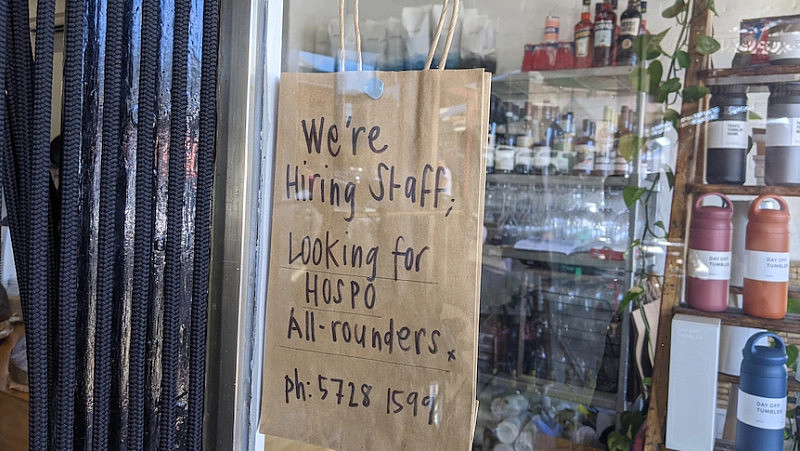 We're
Hiring Staff;
Looking for
HOSPO
All-rounders. x
ph: 5728 1599
DAY OFF
TUMBLER
DAY OFF
TUMBLER
DAY OFF
TUMBLER